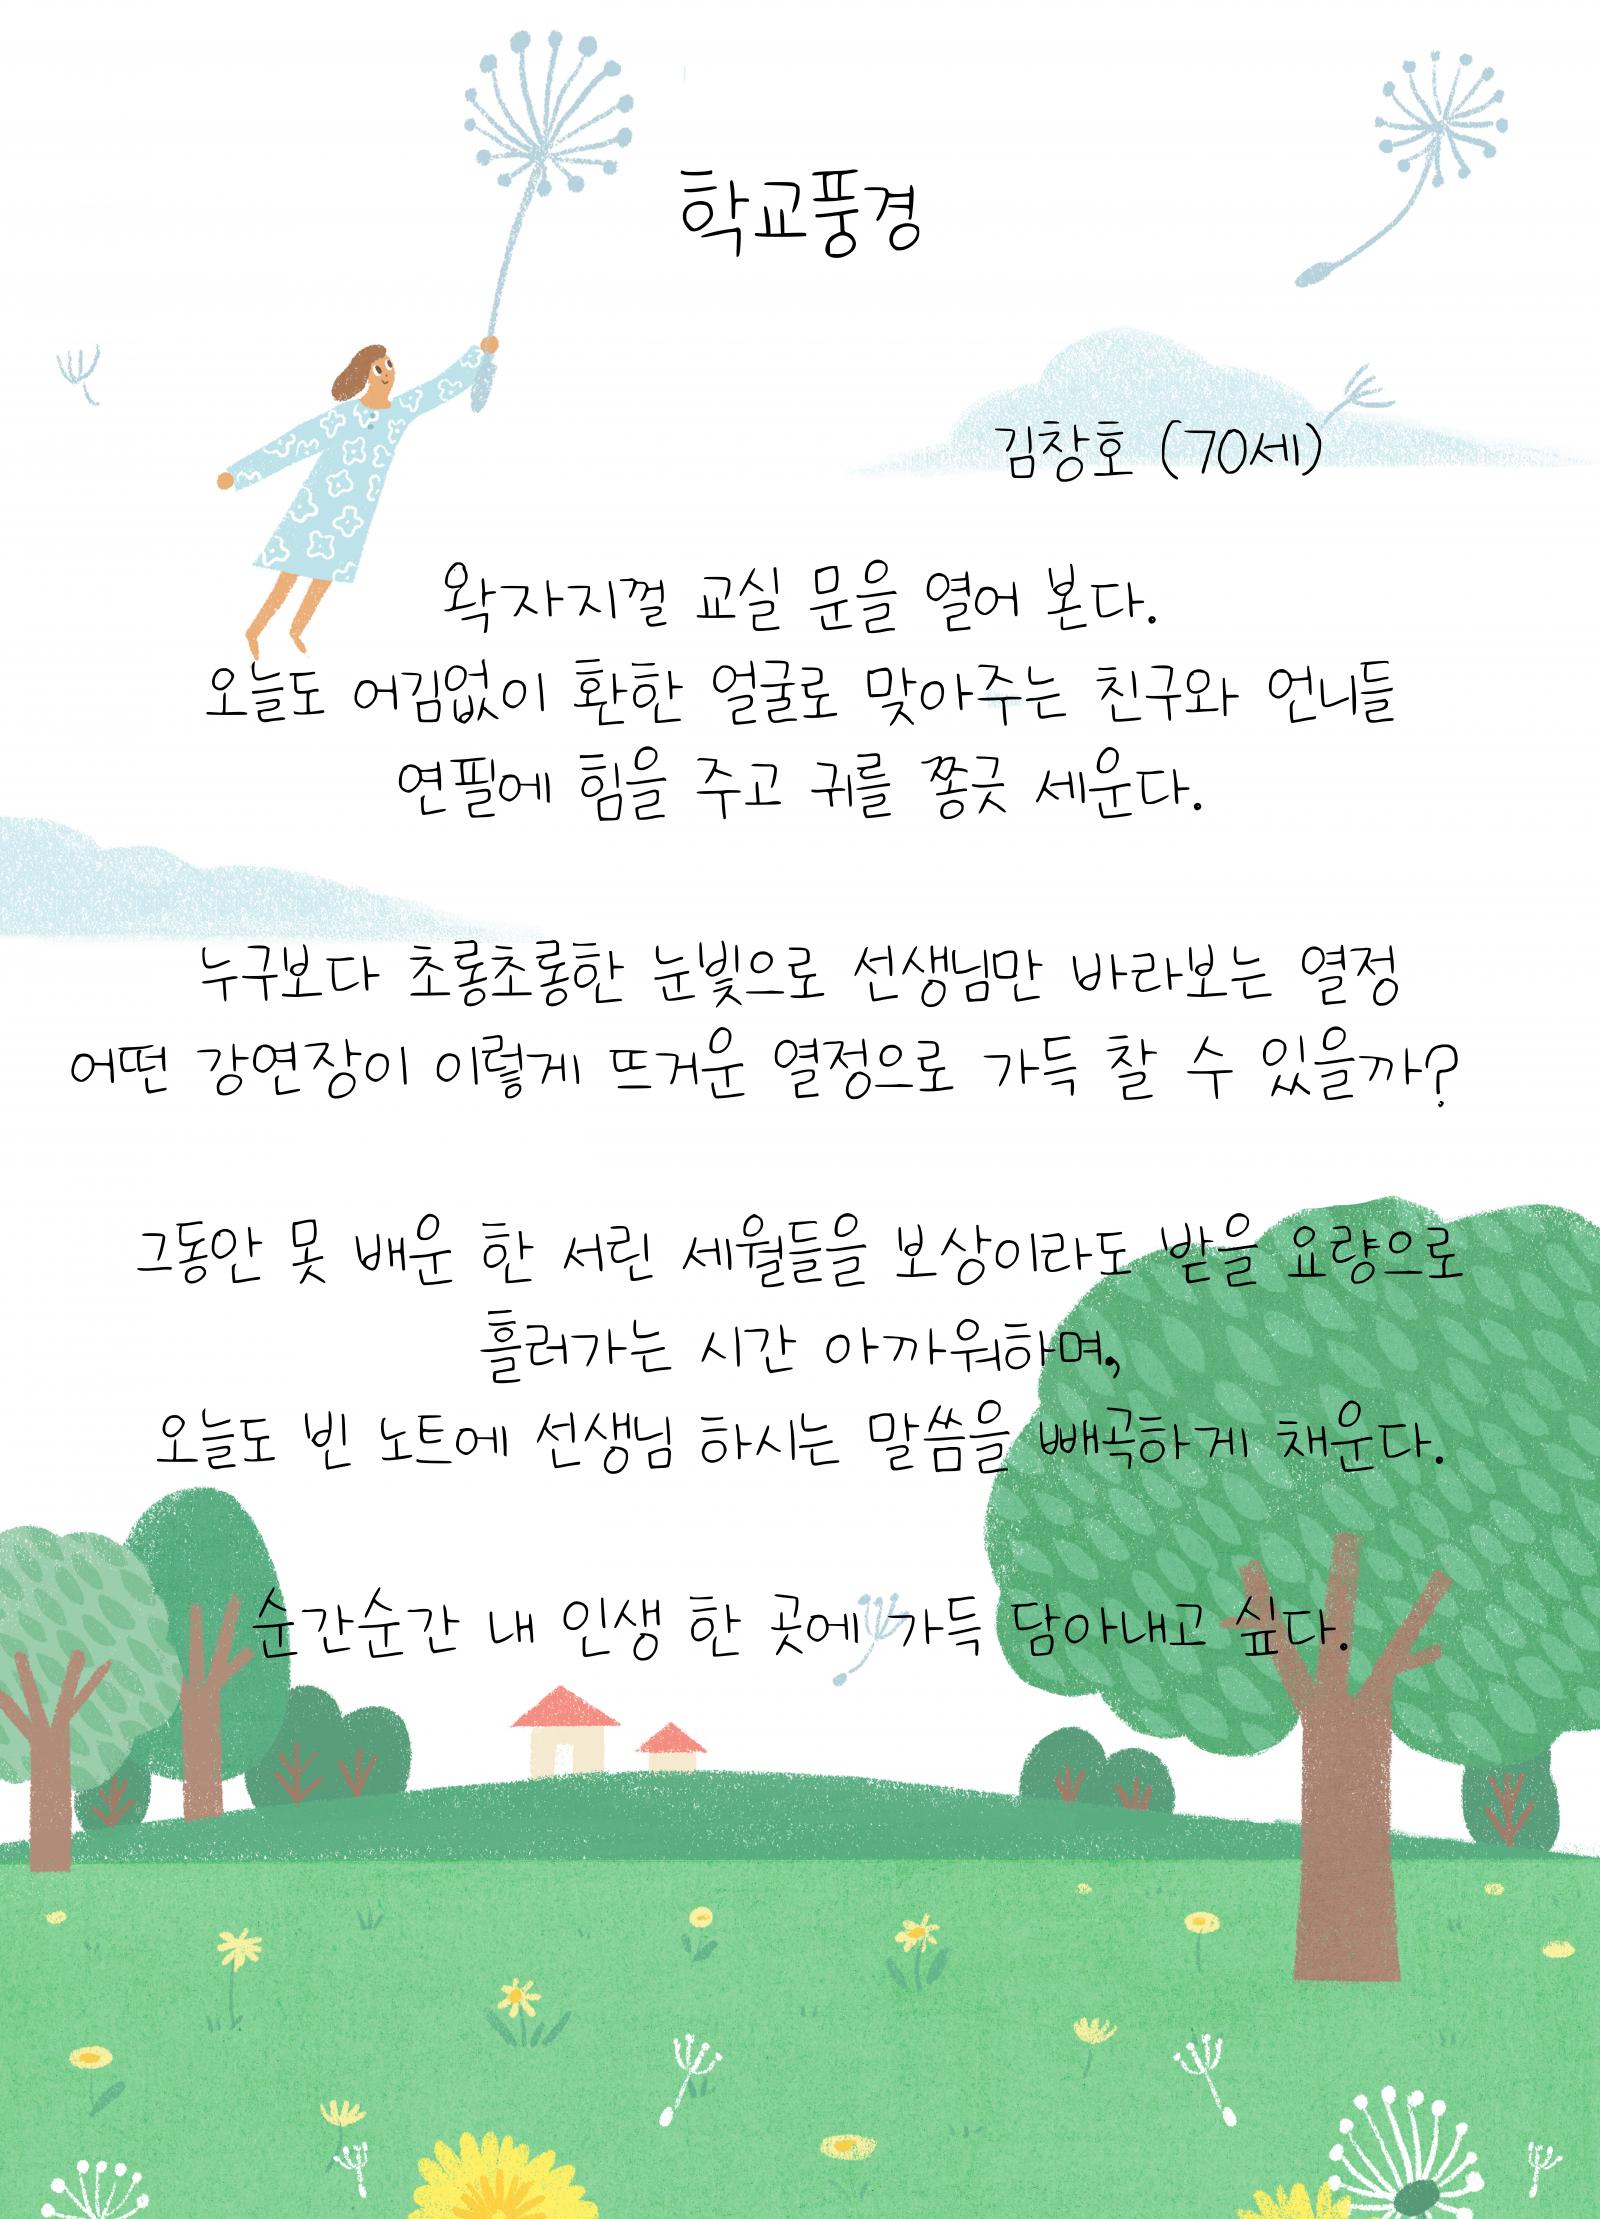 학교풍경
김창호 (70세)
왁자지껄 교실 문을 열어 본다.
오늘도 어김없이 환한 얼굴로 맞아주는 친구와 언니들
연필에 힘을 주고 귀를 쫑긋 세운다.
누구보다 초롱초롱한 눈빛으로 선생님만 바라보는 열정
어떤 강연장이 이렇게 뜨거운 열정으로 가득 찰 수 있을까?
그동안 못 배운 한 서린 세월들을 보상이라도 받을 요량으로
흘러가는 시간 아까워하며,
오늘도 빈 노트에 선생님 하시는 말씀을 빼곡하게 채운다.
순간순간 내 인생 한 곳에 가득 담아내고 싶다.